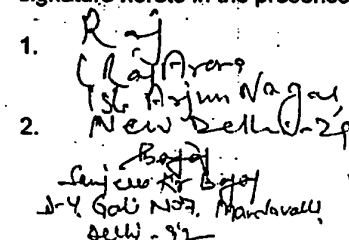 signature hereto in the presence
1. Raj
(Raj Arora
Arjun Nagar,
2. New Delhi-29
Bajaj
Sanjeev Kr Bajaj
Gali No 7, Mandavali
Delhi - 92